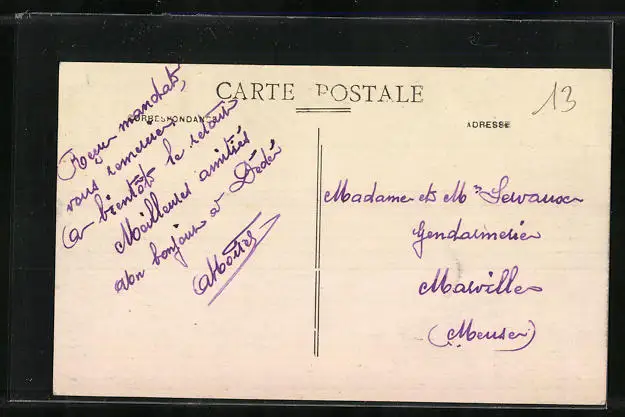 CARTE POSTALE
13
CORRESPONDANCE
ADRESSE
Reçu mandats,
vous remercie.
a bientôt le retour
Meilleures amitiés
un bonjour a Dédé
Madame et Mr
Gendarmerie
Marville
(Meuse)